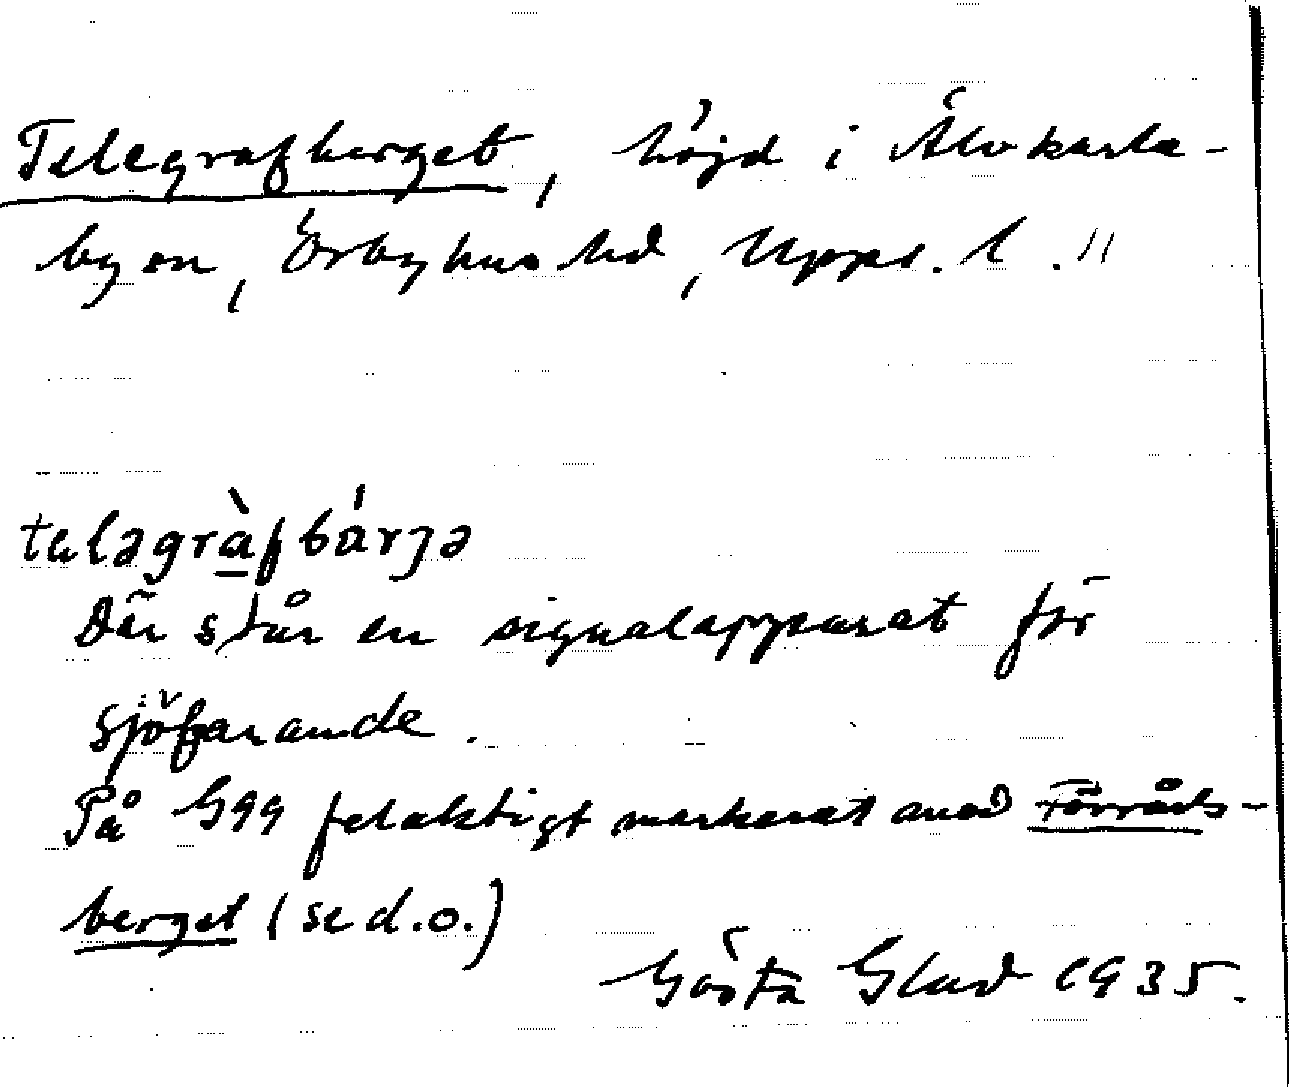 Telegrafberget, höjd i Älvkarleby sn, Örbyhus hd, Uppl. l. "
telǝgràfbárjǝ
Där står en signalapparat för
sjöfarande.
På G99 felaktigt markerat med Förråds-
berget (se d.o.)
Gösta Glad 1935.